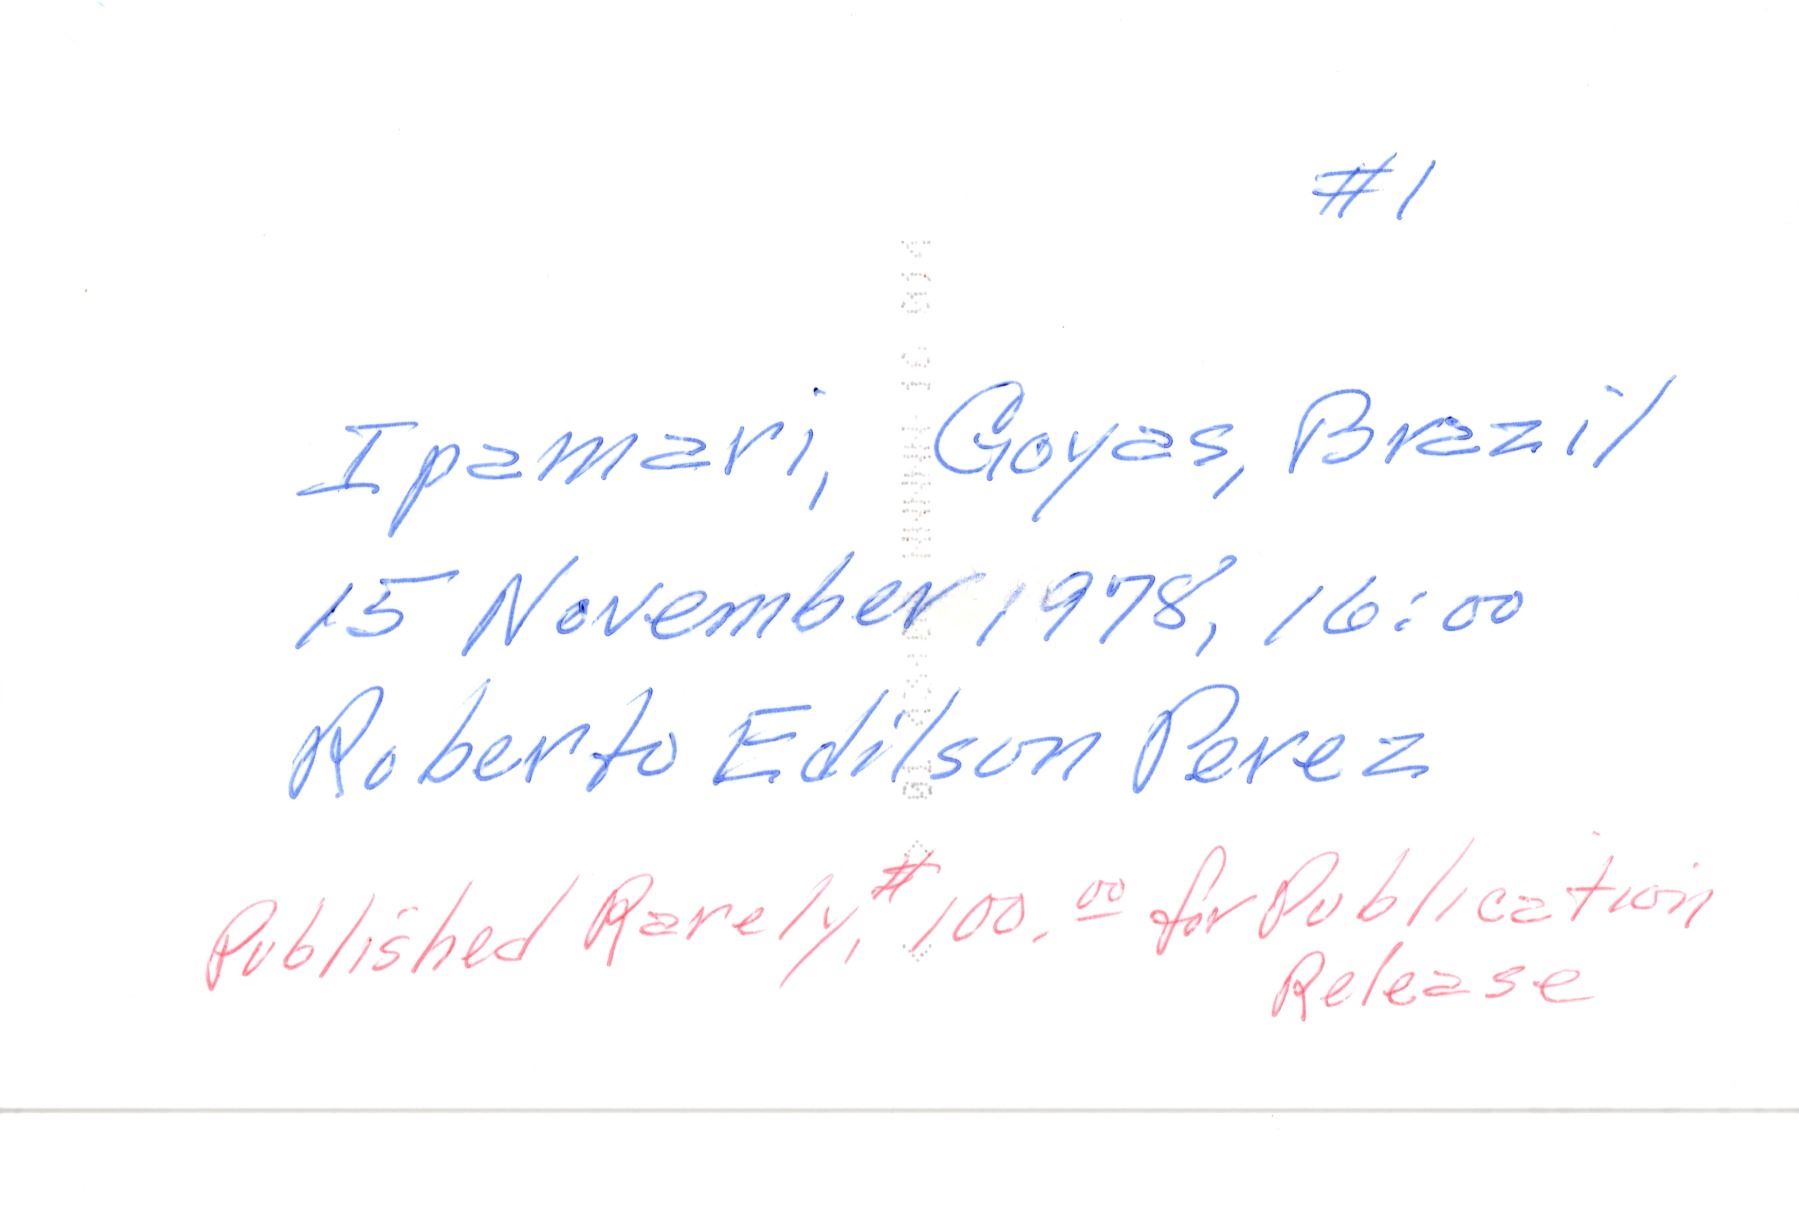 #1
Ipamari, Goyas, Brazil
15 November 1978, 16:00
Roberto Edilson Perez
Published Rarely, $100.00 for Publication
Release